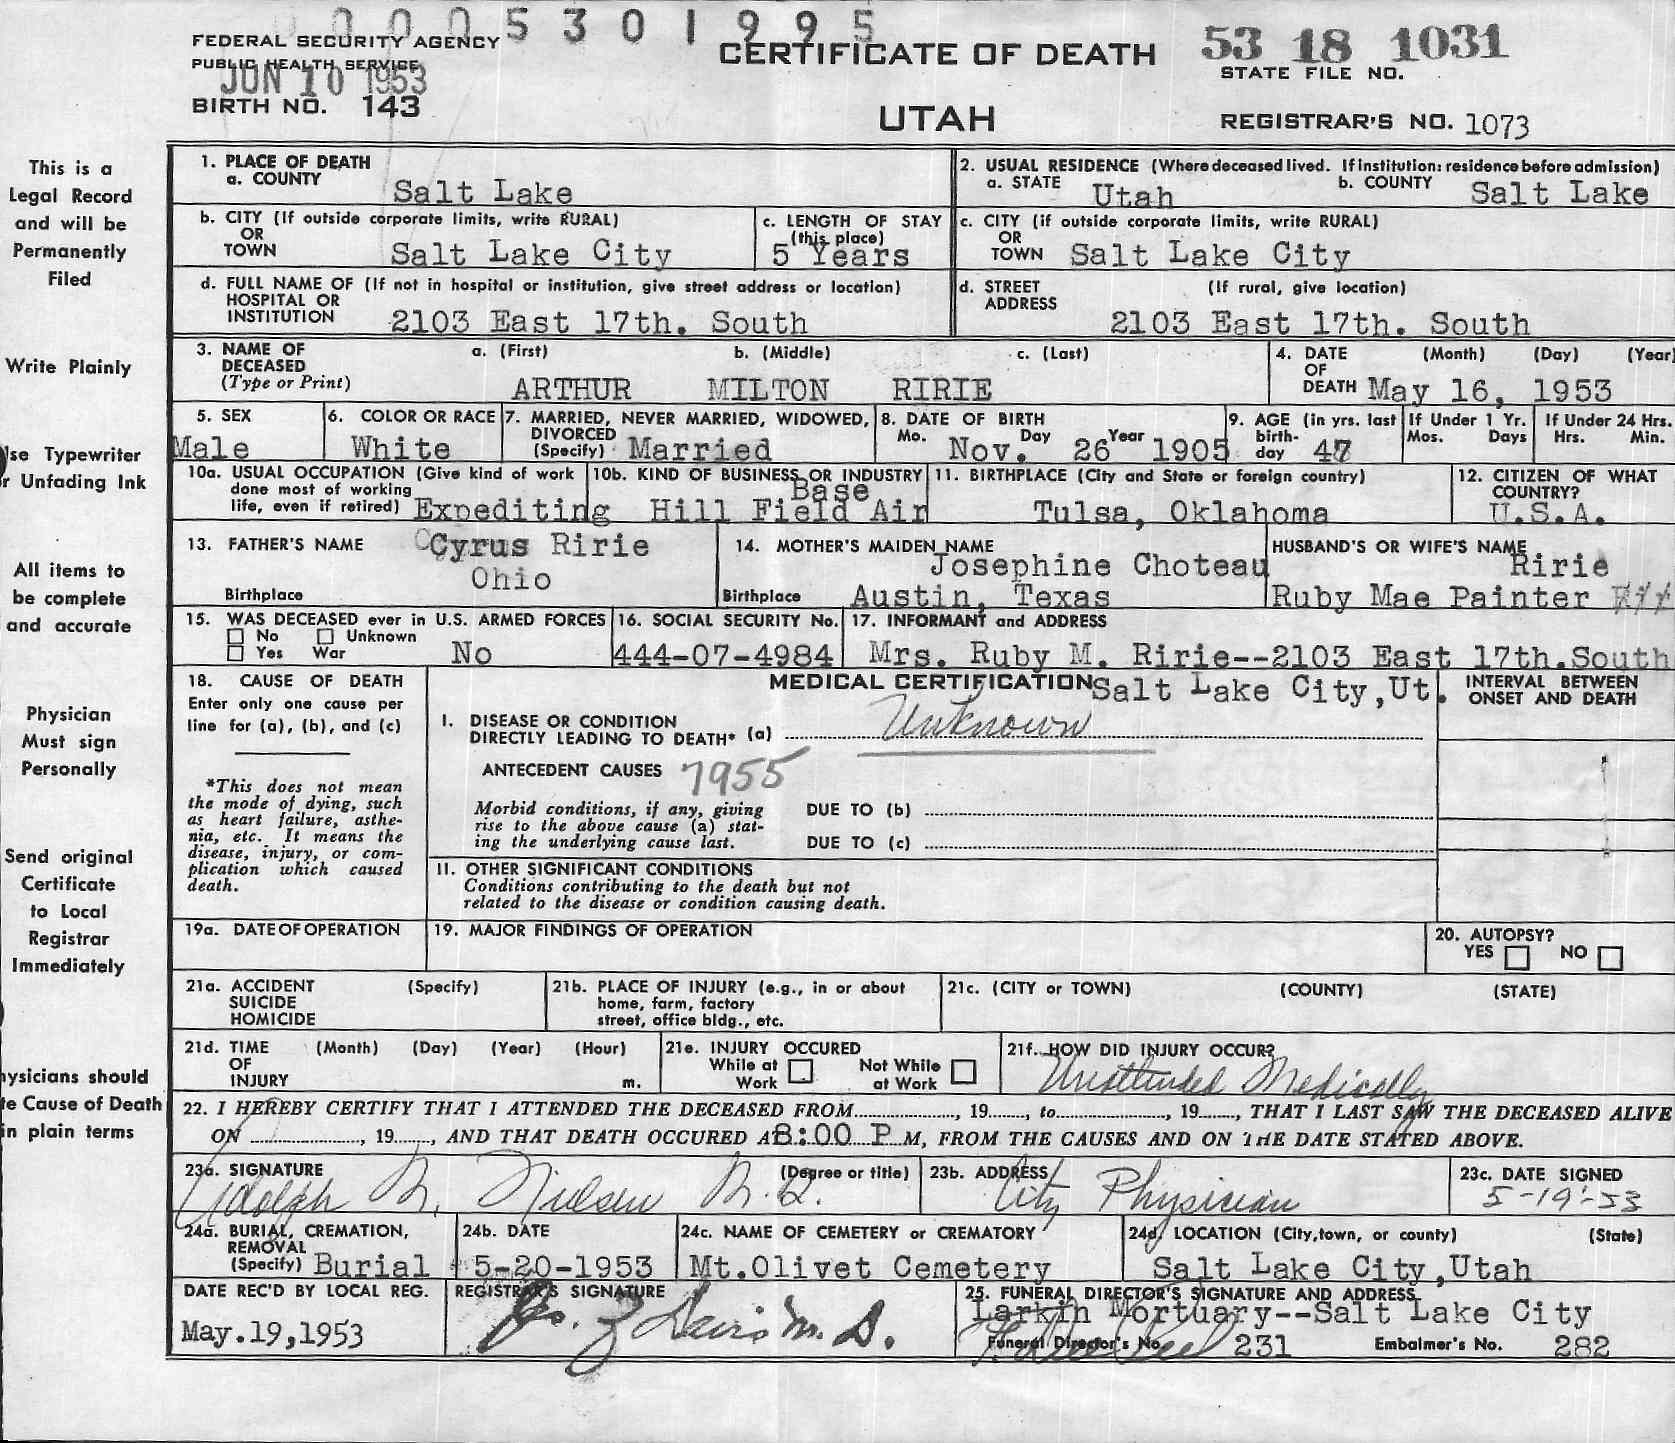 0005301995
FEDERAL SECURITY AGENCY
PUBLIC HEALTH SERVICE
JUN 10 1953
BIRTH NO. 143
CERTIFICATE OF DEATH
UTAH
53 18 1031
STATE FILE NO.
REGISTRAR'S NO. 1073
This is a
Legal Record
and will be
Permanently
Filed
Write Plainly
Use Typewriter
or Unfading Ink
All items to
be complete
and accurate
Physician
Must sign
Personally
Send original
Certificate
to Local
Registrar
Immediately
ysicians should
te Cause of Death
in plain terms
1. PLACE OF DEATH
a. COUNTY Salt Lake
2. USUAL RESIDENCE (Where deceased lived. If institution: residence before admission)
a. STATE Utah b. COUNTY Salt Lake
b. CITY (If outside corporate limits, write RURAL)
OR
TOWN Salt Lake City
c. LENGTH OF STAY
(this place)
5 Years
c. CITY (if outside corporate limits, write RURAL)
OR
TOWN Salt Lake City
d. FULL NAME OF (If not in hospital or institution, give street address or location)
HOSPITAL OR
INSTITUTION 2103 East 17th. South
d. STREET (If rural, give location)
ADDRESS
2103 East 17th. South
3. NAME OF a. (First) b. (Middle) c. (Last)
DECEASED
(Type or Print) ARTHUR MILTON RIRIE
4. DATE (Month) (Day) (Year)
OF
DEATH May 16, 1953
5. SEX
Male
6. COLOR OR RACE
White
7. MARRIED, NEVER MARRIED, WIDOWED,
DIVORCED
(Specify) Married
8. DATE OF BIRTH
Mo. Day Year
Nov. 26 1905
9. AGE (in yrs. last
birth-
day 47
If Under 1 Yr.
Mos. Days
If Under 24 Hrs.
Hrs. Min.
10a. USUAL OCCUPATION (Give kind of work
done most of working
life, even if retired) Expediting
10b. KIND OF BUSINESS OR INDUSTRY
Base
Hill Field Air
11. BIRTHPLACE (City and State or foreign country)
Tulsa, Oklahoma
12. CITIZEN OF WHAT
COUNTRY?
U.S.A.
13. FATHER'S NAME Cyrus Ririe
Ohio
Birthplace
14. MOTHER'S MAIDEN NAME
Josephine Choteau
Birthplace Austin, Texas
HUSBAND'S OR WIFE'S NAME
Ririe
Ruby Mae Painter
15. WAS DECEASED ever in U.S. ARMED FORCES
No Unknown
Yes War No
16. SOCIAL SECURITY No.
444-07-4984
17. INFORMANT and ADDRESS
Mrs. Ruby M. Ririe--2103 East 17th.South
Salt Lake City,Ut.
18. CAUSE OF DEATH
Enter only one cause per
line for (a), (b), and (c)
*This does not mean
the mode of dying, such
as heart failure, asthe-
nia, etc. It means the
disease, injury, or com-
plication which caused
death.
MEDICAL CERTIFICATION
INTERVAL BETWEEN
ONSET AND DEATH
I. DISEASE OR CONDITION
DIRECTLY LEADING TO DEATH* (a) Unknown
ANTECEDENT CAUSES 7955
Morbid conditions, if any, giving DUE TO (b)
rise to the above cause (a) stat-
ing the underlying cause last. DUE TO (c)
II. OTHER SIGNIFICANT CONDITIONS
Conditions contributing to the death but not
related to the disease or condition causing death.
19a. DATE OF OPERATION
19. MAJOR FINDINGS OF OPERATION
20. AUTOPSY?
YES NO
21a. ACCIDENT (Specify)
SUICIDE
HOMICIDE
21b. PLACE OF INJURY (e.g., in or about
home, farm, factory
street, office bldg., etc.
21c. (CITY or TOWN) (COUNTY) (STATE)
21d. TIME (Month) (Day) (Year) (Hour)
OF
INJURY m.
21e. INJURY OCCURED
While at Work Not While at Work
21f. HOW DID INJURY OCCUR?
Unattended Medically
22. I HEREBY CERTIFY THAT I ATTENDED THE DECEASED FROM , 19 , to , 19 , THAT I LAST SAW THE DECEASED ALIVE
ON , 19 , AND THAT DEATH OCCURED A 8:00 P M, FROM THE CAUSES AND ON THE DATE STATED ABOVE.
23a. SIGNATURE (Degree or title)
Adolph M. Nielsen M.D.
23b. ADDRESS
City Physician
23c. DATE SIGNED
5-19-53
24a. BURIAL, CREMATION,
REMOVAL
(Specify) Burial
24b. DATE
5-20-1953
24c. NAME OF CEMETERY or CREMATORY
Mt.Olivet Cemetery
24d. LOCATION (City, town, or county) (State)
Salt Lake City,Utah
DATE REC'D BY LOCAL REG.
May.19,1953
REGISTRAR'S SIGNATURE
Davis M.D.
25. FUNERAL DIRECTOR'S SIGNATURE AND ADDRESS
Larkin Mortuary--Salt Lake City
Funeral Director's No. 231 Embalmer's No. 282